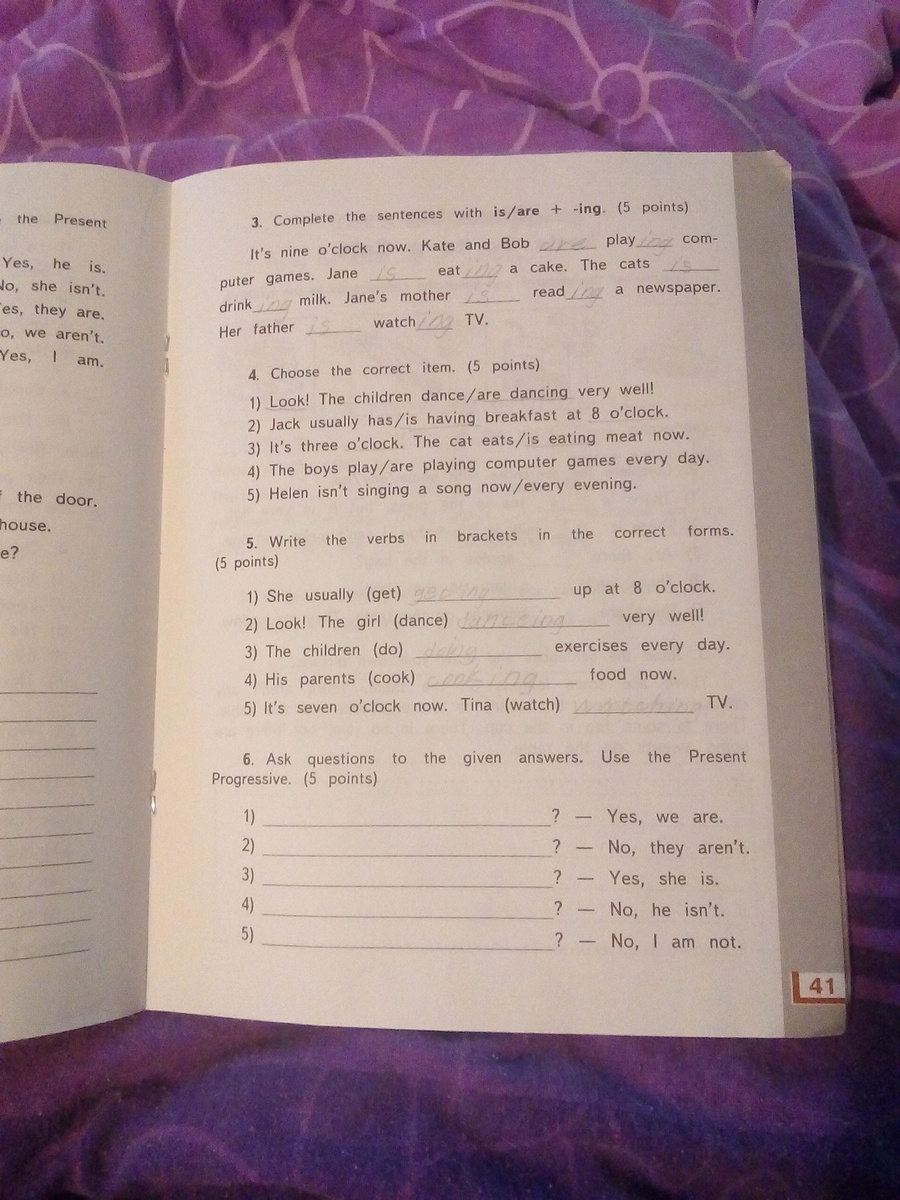 the Present
Yes, he is.
No, she isn't.
Yes, they are.
No, we aren't.
Yes, I am.
the door.
house.
e?
3. Complete the sentences with is/are + -ing. (5 points)
It's nine o'clock now. Kate and Bob are playing com-
puter games. Jane is eating a cake. The cats is
drinking milk. Jane's mother is reading a newspaper.
Her father is watching TV.
4. Choose the correct item. (5 points)
1) Look! The children dance/are dancing very well!
2) Jack usually has/is having breakfast at 8 o'clock.
3) It's three o'clock. The cat eats/is eating meat now.
4) The boys play/are playing computer games every day.
5) Helen isn't singing a song now/every evening.
5. Write the verbs in brackets in the correct forms.
(5 points)
1) She usually (get) up at 8 o'clock.
2) Look! The girl (dance) dancing very well!
3) The children (do) doing exercises every day.
4) His parents (cook) cooking food now.
5) It's seven o'clock now. Tina (watch) watching TV.
6. Ask questions to the given answers. Use the Present
Progressive. (5 points)
1) ? — Yes, we are.
2) ? — No, they aren't.
3) ? — Yes, she is.
4) ? — No, he isn't.
5) ? — No, I am not.
41